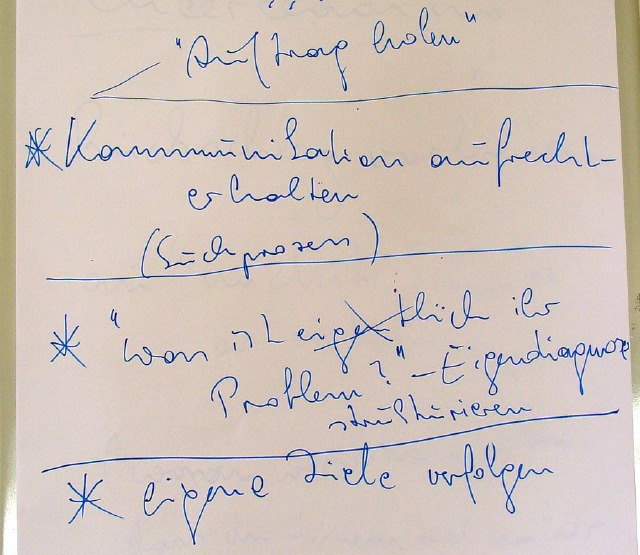 "Auftrag holen"
* Kommunikation aufrecht-
erhalten
(Suchprozess)
* "was ist eigentlich ihr
Problem?" – Eigendiagnose
strukturieren
* eigene Ziele verfolgen